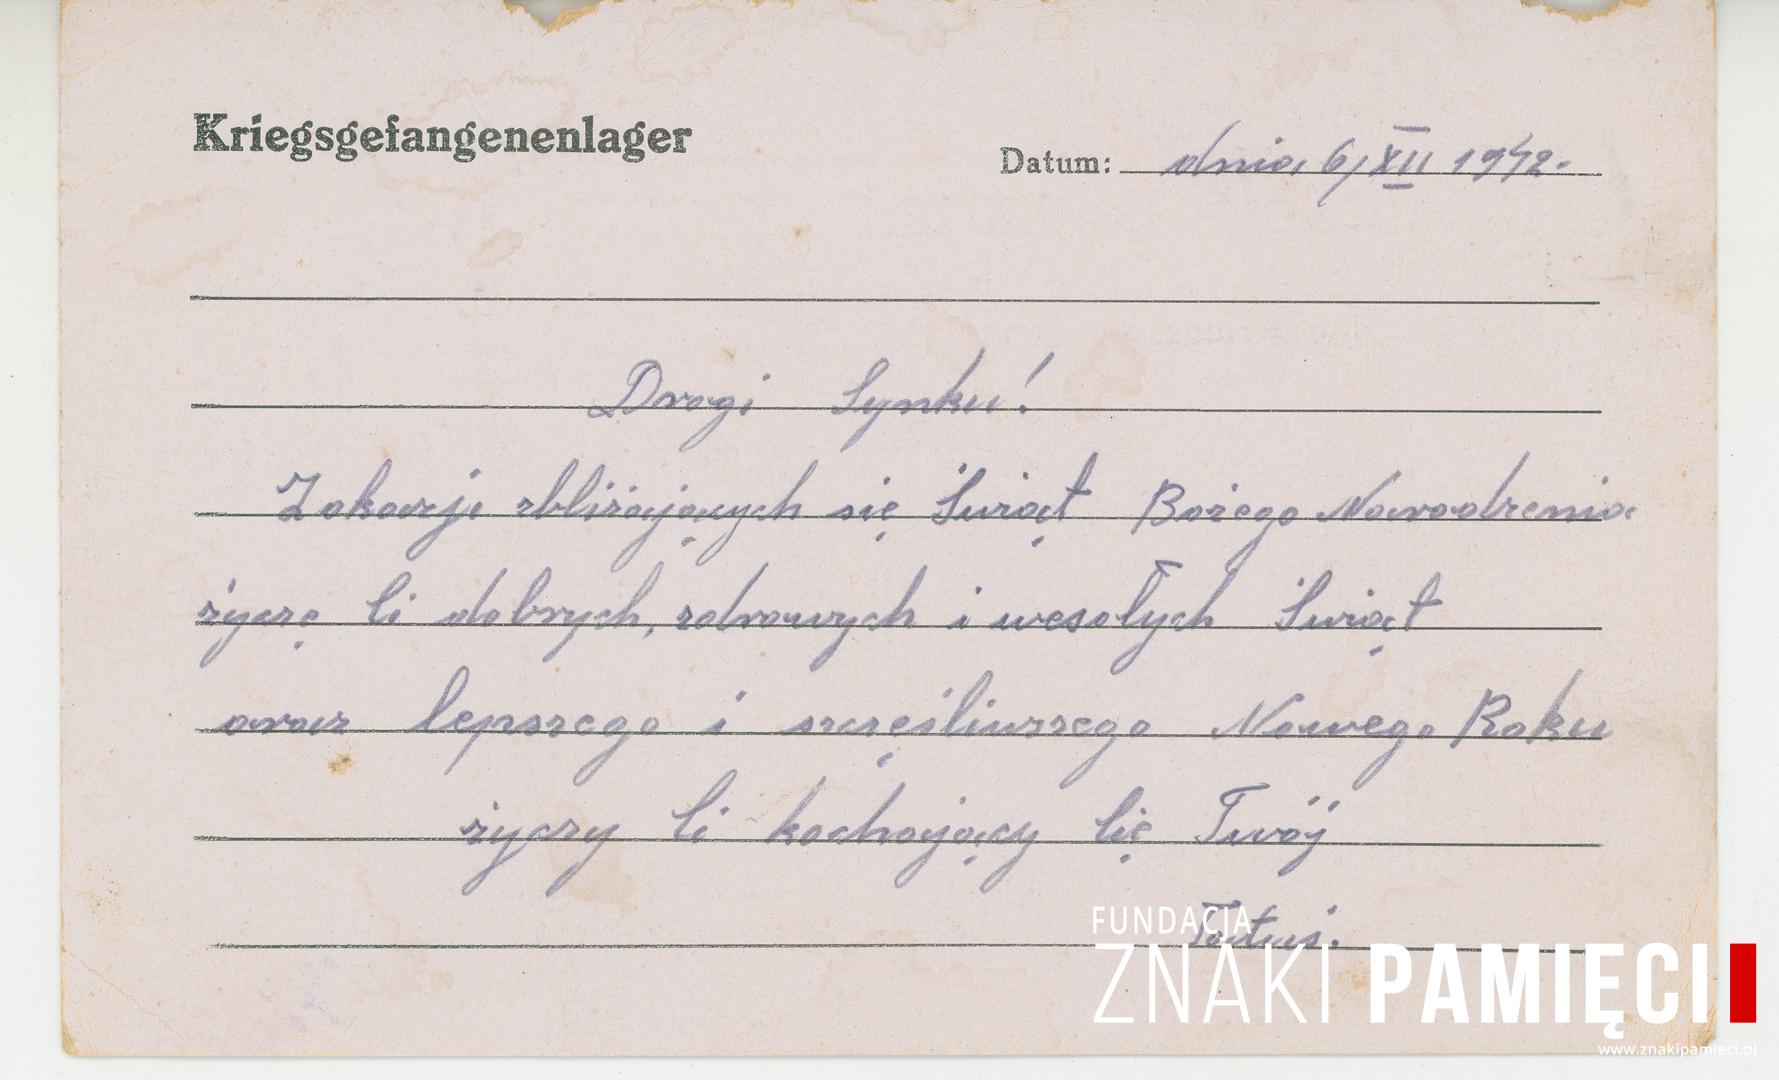 Kriegsgefangenenlager
Datum: dnia 6/XII 1942.
Drogi Synku!
Zokazje zbliżających się Świąt Bożego Narodzenia
życzę Ci dobrych, zdrowych i wesołych Świąt
oraz lepszego i szczęśliwszego Nowego Roku
życzy Ci kochający Cię Twój
Tatuś.
FUNDACJA
ZNAKI PAMIĘCI
www.znakipamieci.pl